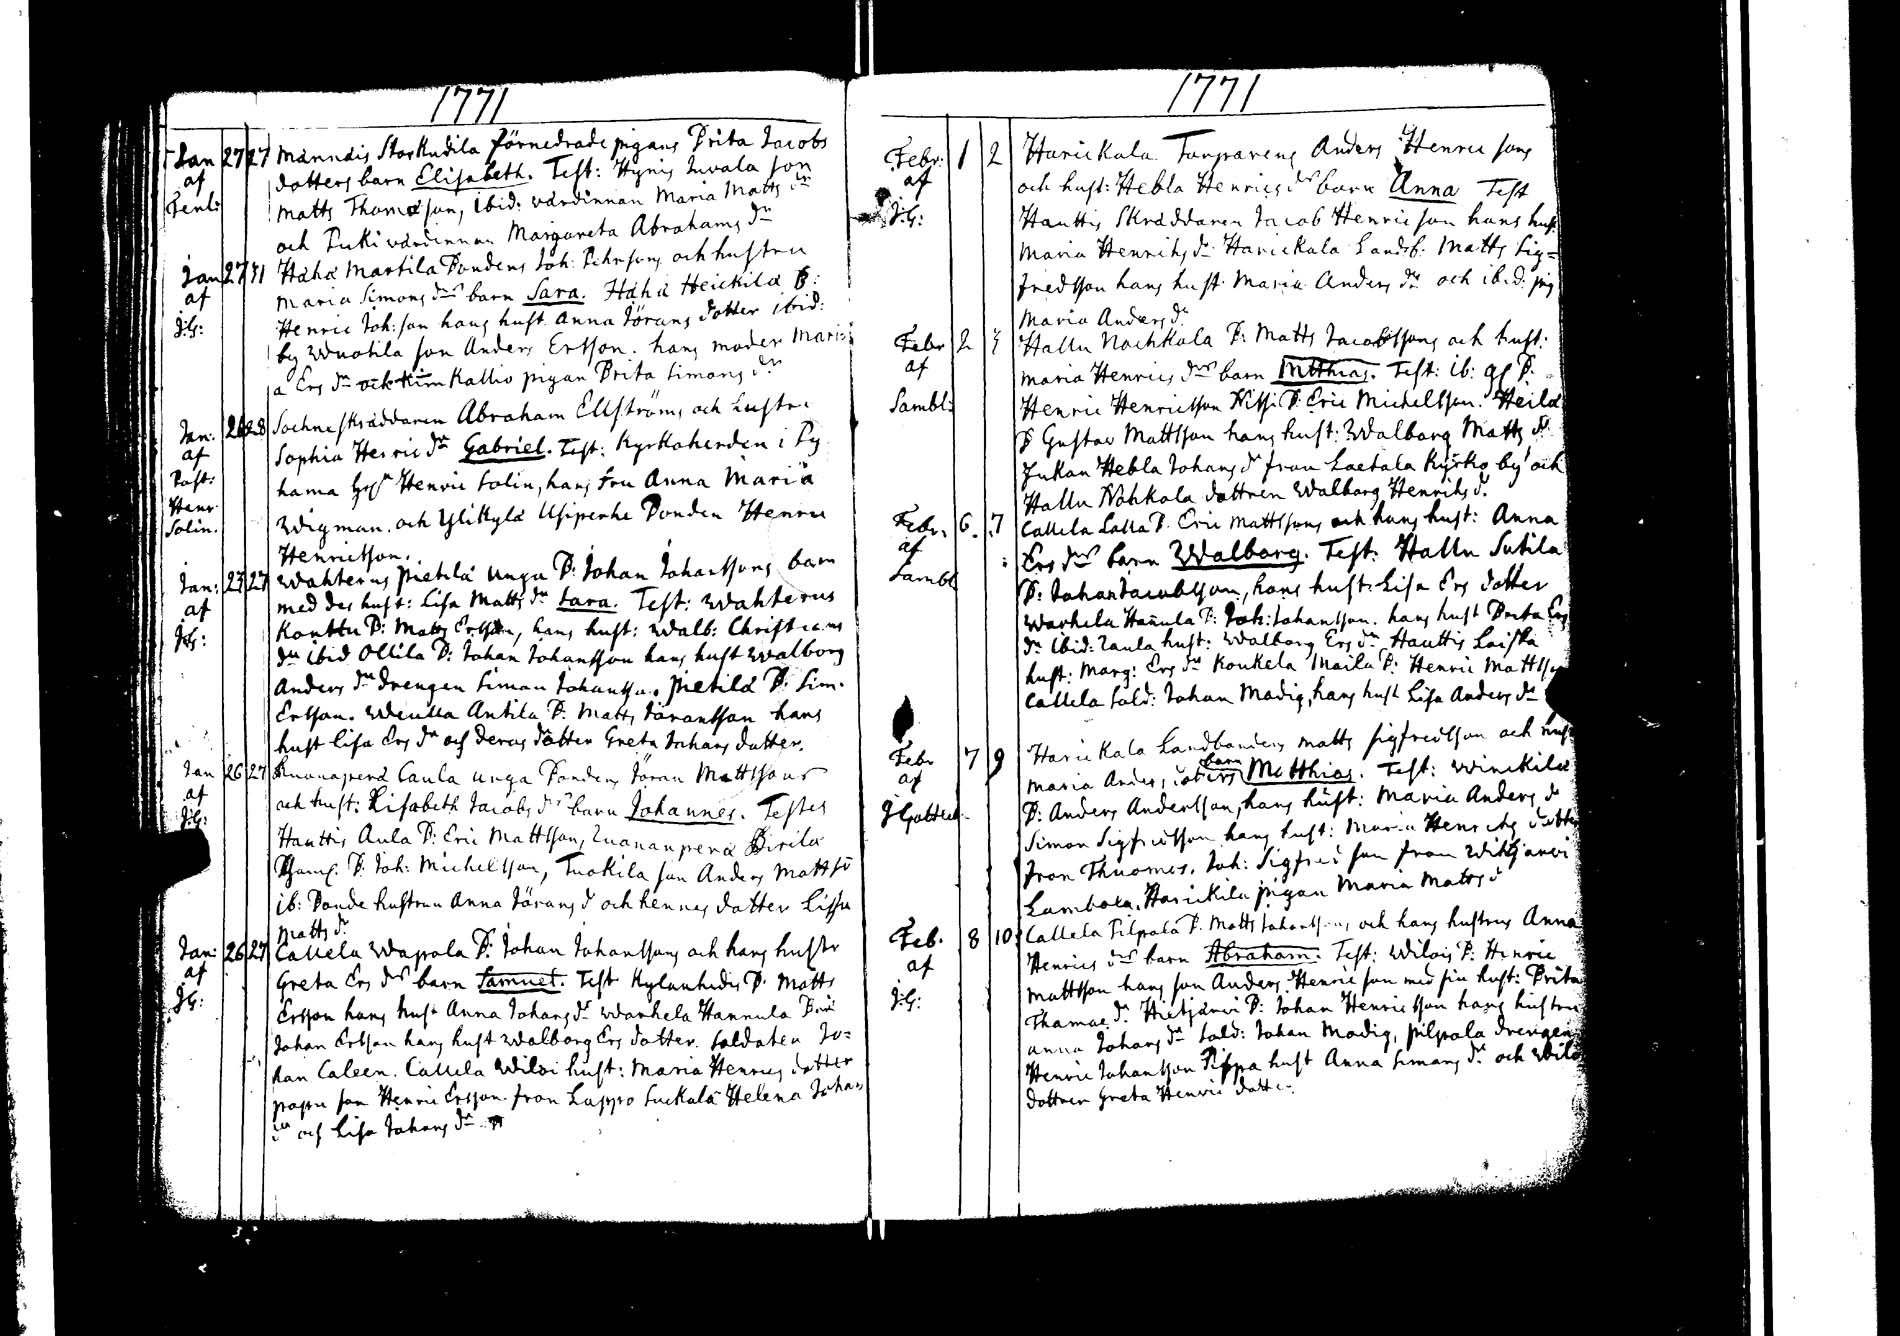 1771
Jan 27 27 Männäis Storkudila förnedrade pigans Brita Jacobs
af dotters barn Elisabeth. Test: Hynnis Juvala son
Matts Thomæson, ibid: värdinnan Maria Matts dr
och Puki värdinnan Margareta Abrahams dr
Jan 27 31 Hähä Martila Bondens Joh: Pehrsons och hustru
af Maria Simons drs barn Sara. Hähä Heickilä B:
J:G: Henric Joh:son hans hust. Anna Jörans dotter ibid:
by Wuotila son Anders Ersson. hans moder Mari-
a Ers dr Kallio pigan Brita Simons dr
Jan: 26 28 Sochneskräddaren Abraham Ellströms och hustru
af Sophia Henric dr Gabriel. Test: Kyrkoherden i Py
Past: hama Henric Solin, hans Fru Anna Maria
Henr Wigman. och Ylikylä Usiperhe Bonden Henric
Solin. Henricsson.
Jan: 23 27 Wahterus Pietilä unga B: Johan Johanssons barn
af med des hust: Lisa Matts dr Sara. Test: Wahterus
J:G: Konttu B: Matts Ersson, hans hust: Walb: Christians
dr ibid Ollila B: Johan Johansson hans hust Walborg
Anders dr drengen Simon Johansson. Pietilä B. Sim.
Ersson. Antila B: Matts Jöransson hans
hust Lisa Ers dr och deras dotter Greta Johans dotter.
Jan 26 27 Caula unga Bondens Jöran Mattssons
af och hust: Lisabeth Jacobs drs barn Johannes. Testes
J:G: Hauttis Aula B: Eric Mattsson, Luananperä Birilä
B: Joh: Michelsson, Tuokila son Anders Matts
ib: Bonde hustrun Anna Jörans d och hennes dotter Lissa
Matts dr
Jan: 26 27 Callela Wapola B: Johan Johanssons och hans hustr
af Greta Ers drs barn Samuel. Test Kylänhidis B. Matts
J:G: Ersson hans hust Anna Johans dr. Warhela Hannula
Johan Ersson hans hust Walborg Ers dotter. soldaten Jo=
han Caleen. Callela Wiloi hust: Maria Henrics dotter
son Henric Ersson. fron Lappo Suckala Helena Johans
dr och Lisa Johans dr
1771
Febr: 1 2 Harickala Torparens Anders Henric sons
af och hust: Hebla Henrics drs barn Anna Test
J:G: Hauttis Skräddaren Jacob Henricson hans hust
Maria Henrichs dr Harickala Landb: Matts Sig=
fredsson hans hust. Maria Anders dr och ibid: pig
Maria Anders dr
Febr 2 3 Hallu Nochkola B: Matts Jacobssons och hust:
af Maria Henrics drs barn Matthias. Test: ib: B.
Sambl: Henric Henricsson Nissi B: Eric Michelsson. Heilä
B Gustav Mattsson hans hust: Walborg Matts dr
Jukan Hebla Johans dr fron Laetala Kyrko by och
Hallu Nohkola dottren Walborg Henrichs d.
Febr. 6. 7 Callela Lalla B. Eric Mattssons och hans hust: Anna
af Ers drs barn Walborg. Test: Hallu Sutila
Sambl B: Johan Jacobsson, hans hust: Lisa Ers dotter
Warhela Hannula B: Joh: Johansson. hans hust Brita Ers
dr ibid: Laula hust: Walborg Ers dr Hauttis Laiska
hust: Marg: Ers dr Koukela Maila B: Henric Mattsso
Callela Sold: Johan Modig, hans hust Lisa Anders dr
Febr 7 9 Harickala Landbondens Matts Sigfredsson och hust
af Maria Anders dotters barn Matthias. Test: Winckila
J Gottleb. B: Anders Andersson, hans hust: Maria Anders dr
Simon Sigfredsson hans hust: Maria Henrichs dotter
fron Thuomois. Joh: Sigfred son fron Witsjärvi
Lambola, Harickila pigan Maria Matts d
Feb. 8 10 Callela Pilpola B. Matts Johanssons och hans hustrus Anna
af Henrics drs barn Abraham. Test: Wiloi B: Henric
J:G: Mattsson hans son Anders Henric son med sin hust: Brita
Thomæ dr. Hietjärvi B: Johan Henricsson hans hustru
Anna Johans dr Sold: Johan Modig, Pilpola drengen
Henric Johansson Pippa hust Anna Simons dr och Wiloi
dottren Greta Henric dotter.